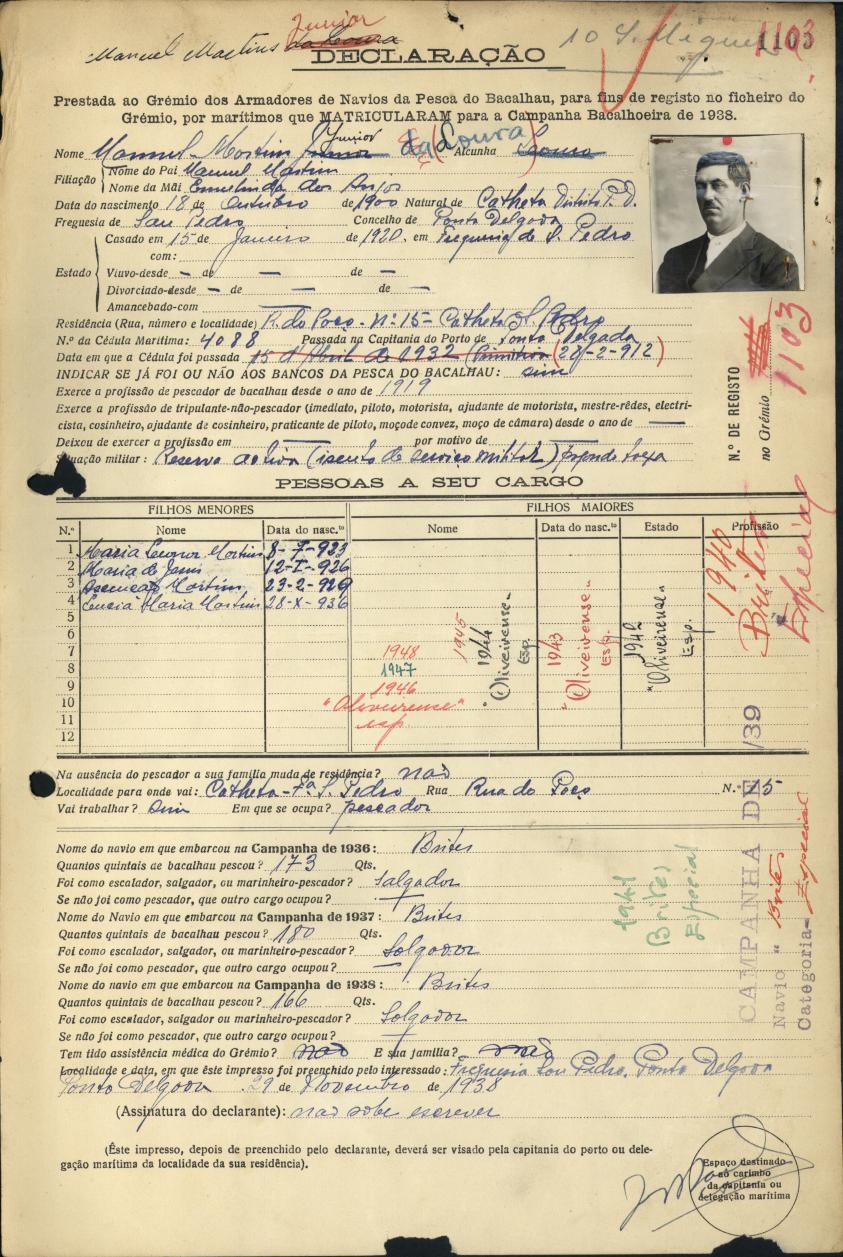 Manuel Martins da Loura Junior
10 S. Miguel
1103
DECLARAÇÃO
Prestada ao Grémio dos Armadores de Navios da Pesca do Bacalhau, para fins de registo no ficheiro do
Grémio, por marítimos que MATRICULARAM para a Campanha Bacalhoeira de 1938.
Nome Manuel Martins Junior (da Loura) Alcunha Loura
Filiação Nome do Pai Manuel Martins
Nome da Mãi Ermelinda dos Anjos
Data do nascimento 18 de Outubro de 1900 Natural de Calheta Distrito P. D.
Freguesia de San Pedro Concelho de Ponta Delgada
Casado em 15 de Janeiro de 1920. em Freguesia de S. Pedro
com:
Estado Viuvo-desde — de — de —
Divorciado-desde — de — de —
Amancebado-com —
Residência (Rua, número e localidade) R. do Poço - Nº 15 - Calheta S. Pedro
N.º da Cédula Marítima: 4088 Passada na Capitania do Porto de Ponta Delgada
Data em que a Cédula foi passada 15 d'Abril de 1932 (Primitiva (28-2-912)
INDICAR SE JÁ FOI OU NÃO AOS BANCOS DA PESCA DO BACALHAU: sim
Exerce a profissão de pescador de bacalhau desde o ano de 1919
Exerce a profissão de tripulante-não-pescador (imediato, piloto, motorista, ajudante de motorista, mestre-rêdes, electri-
cista, cosinheiro, ajudante de cosinheiro, praticante de piloto, moço de convez, moço de câmara) desde o ano de —
Deixou de exercer a profissão em — por motivo de —
Situação militar: Reserva activa (isento de serviço militar) paga taxa
N.º DE REGISTO
no Grémio 1103
PESSOAS A SEU CARGO
FILHOS MENORES FILHOS MAIORES
N.º Nome Data do nasc.to Nome Data do nasc.to Estado Profissão
1 Maria Leonor Martins 8-7-923
2 Maria de Jesus 12-I-926
3 Ascenção Martins 23-2-929
4 Lucia Maria Martins 28-X-936
5
6
7 1948
8 1947
9 1946
10 "Oliveirense"
11 esp.
12
1945
1944 "Oliveirense" Esp.
1943 "Oliveirense" Esp.
1942 "Oliveirense" Esp.
1940 Brites Especial
Na ausência do pescador a sua família muda de residência? não
Localidade para onde vai: Calheta - Fª S. Pedro Rua Rua do Poço N.º 15
Vai trabalhar? sim Em que se ocupa? pescador
Nome do navio em que embarcou na Campanha de 1936: Brites
Quantos quintais de bacalhau pescou? 173 Qts.
Foi como escalador, salgador, ou marinheiro-pescador? Salgador
Se não foi como pescador, que outro cargo ocupou? —
Nome do Navio em que embarcou na Campanha de 1937: Brites
Quantos quintais de bacalhau pescou? 180 Qts.
Foi como escalador, salgador, ou marinheiro-pescador? Salgador
Se não foi como pescador, que outro cargo ocupou? —
Nome do navio em que embarcou na Campanha de 1938: Brites
Quantos quintais de bacalhau pescou? 166 Qts.
Foi como escalador, salgador ou marinheiro-pescador? Salgador
Se não foi como pescador, que outro cargo ocupou? —
1941 Brites Especial
CAMPANHA DE /39
Navio "Brites
Categoria- Especial
Tem tido assistência médica do Grémio? não E sua família? não
Localidade e data, em que êste impresso foi preenchido pelo interessado: Freguesia San Pedro, Ponta Delgada
Ponta Delgada 29 de Novembro de 1938
(Assinatura do declarante): não sabe escrever
(Êste impresso, depois de preenchido pelo declarante, deverá ser visado pela capitania do porto ou dele-
gação marítima da localidade da sua residência).
Espaço destinado
ao carimbo
da capitania ou
delegação marítima